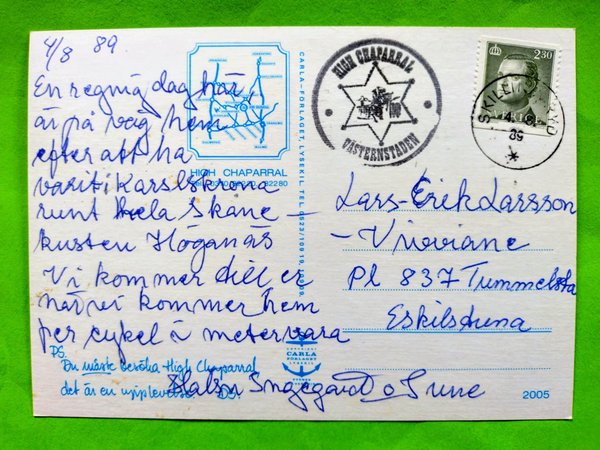 4/8 89.
En regnig dag här
är på väg hem
efter att ha
varit i Karlskrona
runt hela Skåne –
kusten Höganäs
Vi kommer till er
när vi kommer hem
per cykel å metervara
PS.
Du måste besöka High Chaparral
det är en upplevelse. DS.
Hälsn Ingegard o Sune
HIGH CHAPARRAL
CARLA-FÖRLAGET, LYSEKIL TEL 0523/10919,
CARLA
FÖRLAGET
LYSEKIL
HIGH CHAPARRAL
VÄSTERNSTADEN
2.30
4. 8.
89
Lars-Erik Larsson
– Viviviane
Pl 837 Tummelsta
Eskilstuna
2005